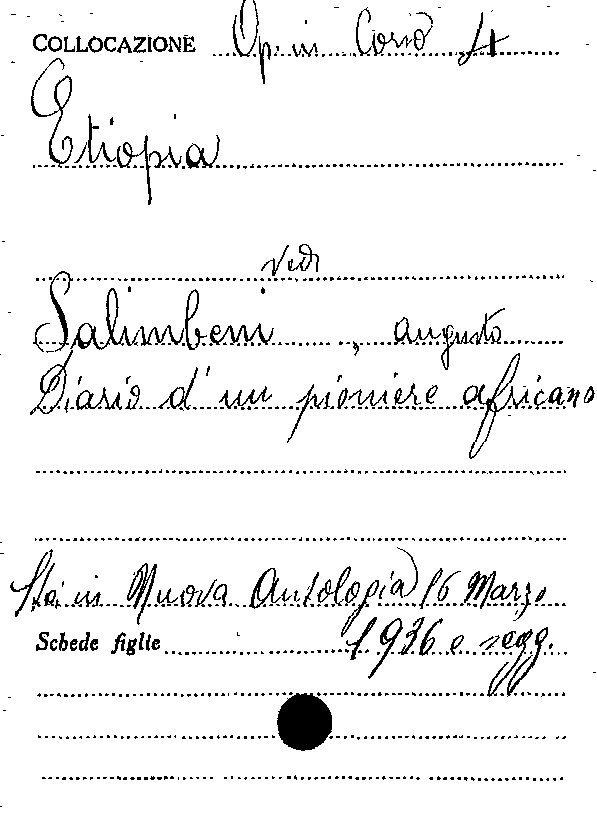 COLLOCAZIONE Op. in Corso 4
Etiopia
vedi
Salimbeni, Augusto
Diario d'un pioniere africano
Sta in Nuova Antologia 16 Marzo
Schede figlie 1936 e segg.